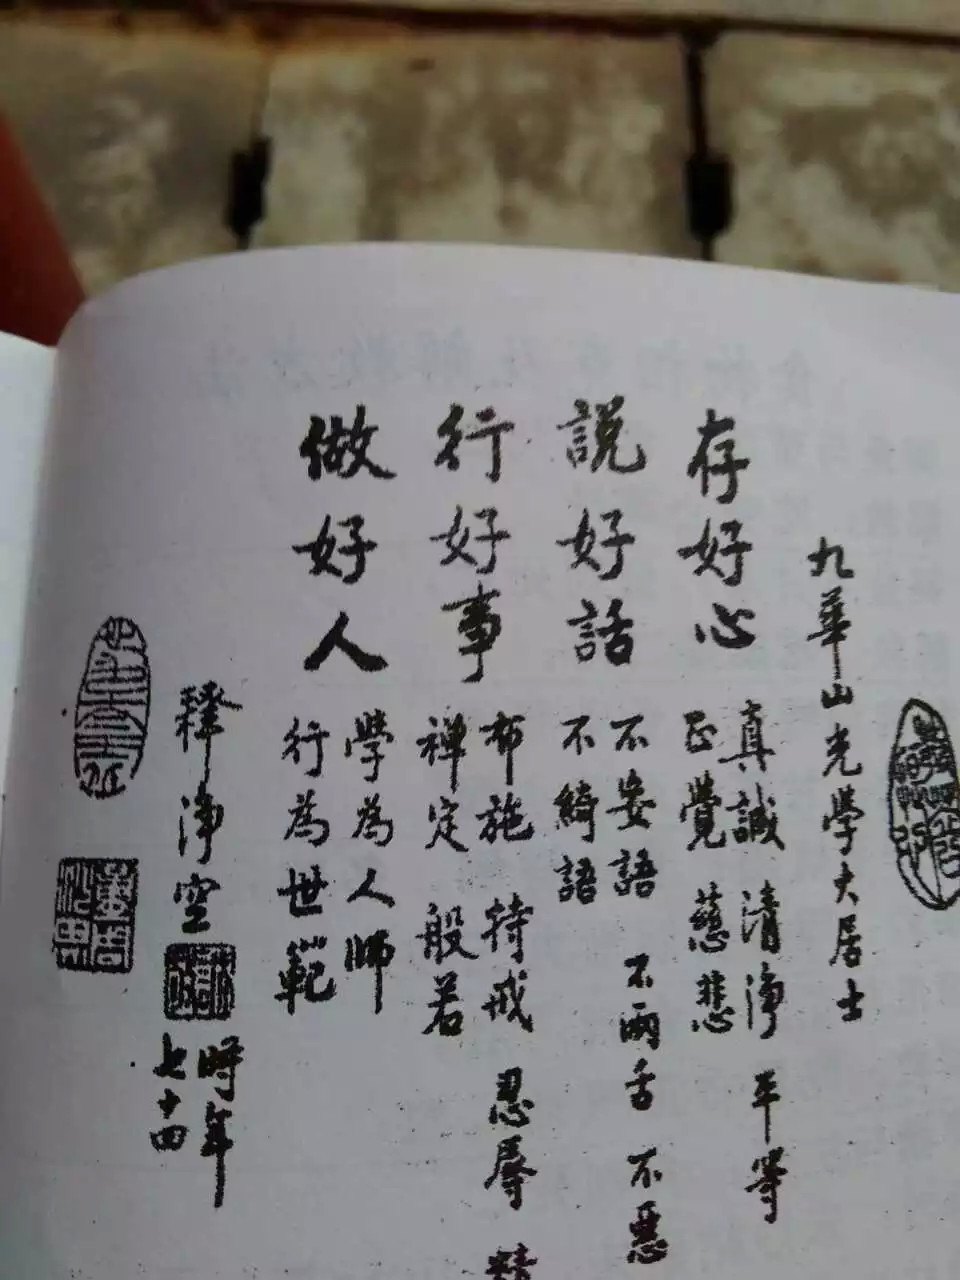 九華山光學大居士
存好心
真誠 清淨 平等
正覺 慈悲
說好話
不妄語 不兩舌 不惡
不綺語
行好事
布施 持戒 忍辱 精
禅定 般若
做好人
學為人師
行為世範
釋淨空
時年
七十四